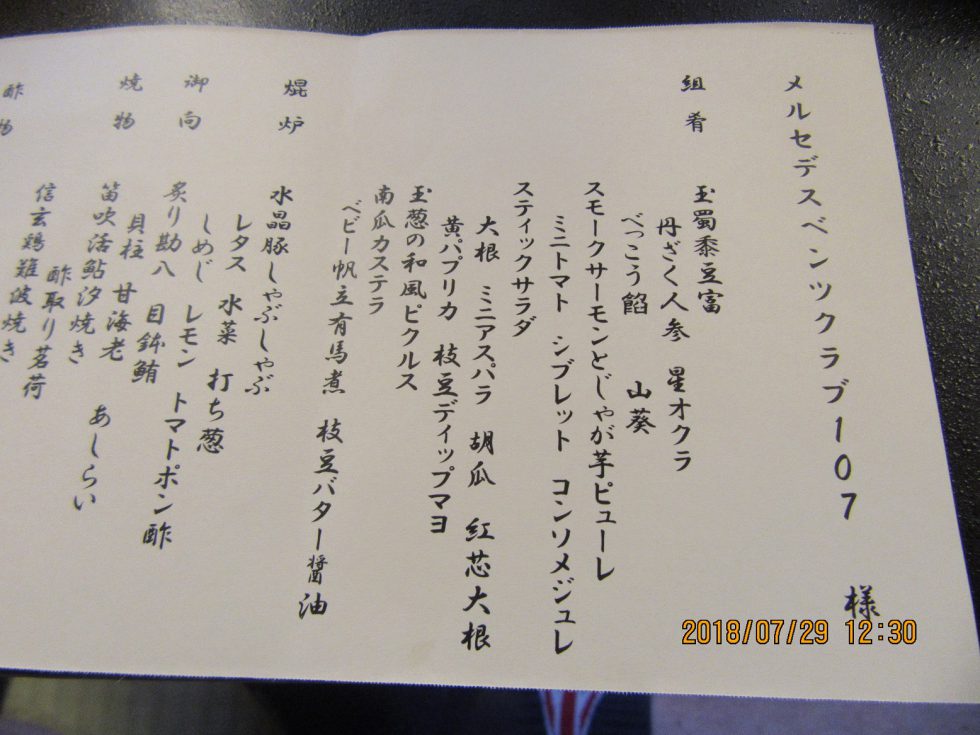 メルセデスベンツクラブ107　様
組肴
玉蜀黍豆富
丹ざく人参　星オクラ
べっこう餡　山葵
スモークサーモンとじゃが芋ピューレ
ミニトマト　シブレット　コンソメジュレ
スティックサラダ
大根　ミニアスパラ　胡瓜　紅芯大根
黄パプリカ　枝豆ディップマヨ
玉葱の和風ピクルス
南瓜カステラ
ベビー帆立有馬煮　枝豆バター醤油
焜炉
水晶豚しゃぶしゃぶ
レタス　水菜　打ち葱
しめじ　レモン　トマトポン酢
御向
炙り勘八　目鉢鮪
貝柱　甘海老
焼物
笛吹活鮎汐焼き　あしらい
酢取り茗荷
信玄鶏難波焼き
酢物
2018/07/29 12:30